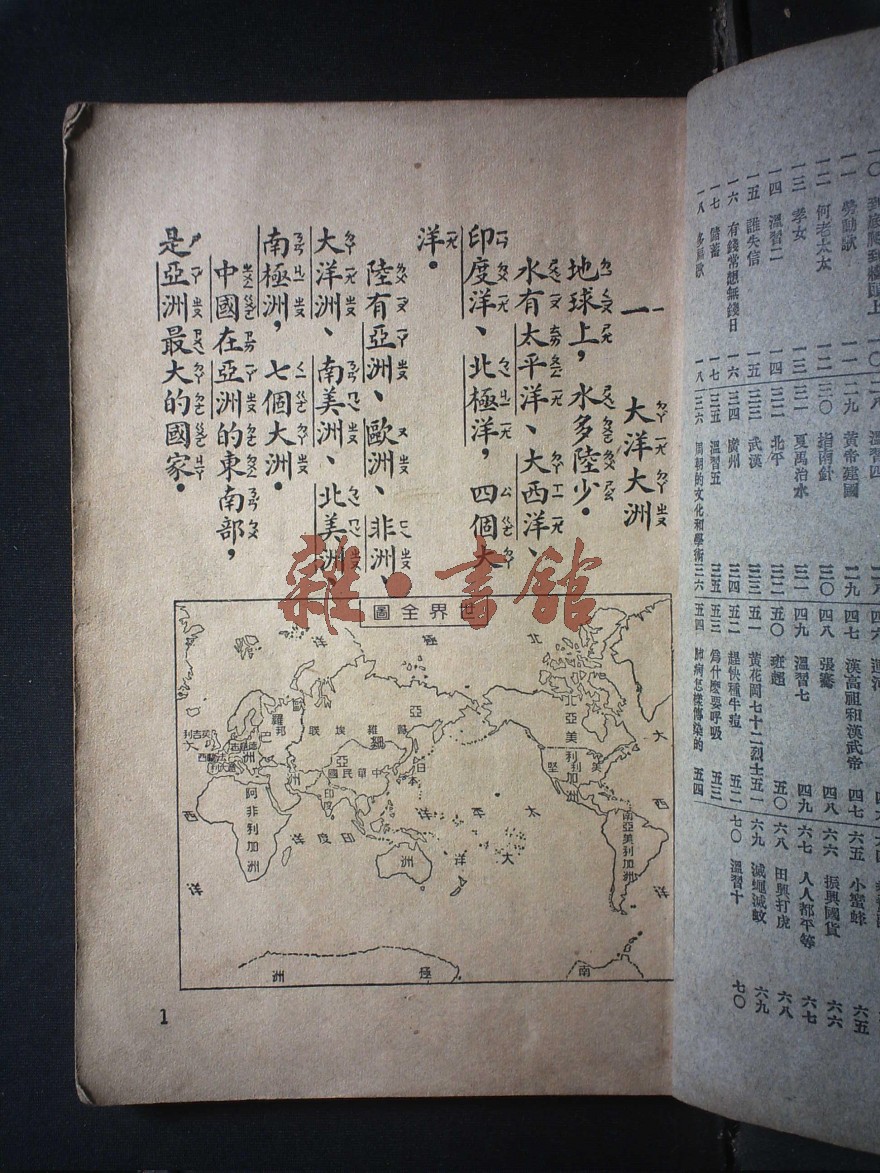 一 大洋大洲
地球上，水多陸少。
水有太平洋、大西洋、
印度洋、北極洋，四個大
洋。
陸有亞洲、歐洲、非洲、
大洋洲、南美洲、北美洲、
南極洲，七個大洲。
中國在亞洲的東南部，
是亞洲最大的國家。
圖全界世
洋 極 北
亞
歐
洲
中華民國
日本
印度
阿非利加洲
洋 度 印
洋 平 太 大
北亞美利加洲
南亞美利加洲
美
堅
大 西 洋
洲 極 南
1
雜·書館
一一 勞動歌 一一
一二 何老太太 一二
一三 孝女 一三
一四 溫習二 一四
一五 誰失信 一五
一六 有錢常想無錢日 一六
一七 儲蓄 一七
一八
二九 黃帝建國 二九
三〇 指南針 三〇
三一 夏禹治水 三一
三二 北平 三二
三三 武漢 三三
三四 廣州 三四
三五 溫習五 三五
三六 周朝的文化和學術 三六
四七 漢高祖和漢武帝 四七
四八 張騫 四八
四九 溫習七 四九
五〇 班超 五〇
五一 黃花岡七十二烈士 五一
五二 趕快種牛痘 五二
五三 為什麼要呼吸 五三
五四 肺病怎樣傳染的 五四
六五 小蜜蜂 六五
六六 振興國貨 六六
六七 人人都平等 六七
六八 田興打虎 六八
六九 滅蠅滅蚊 六九
七〇 溫習十 七〇